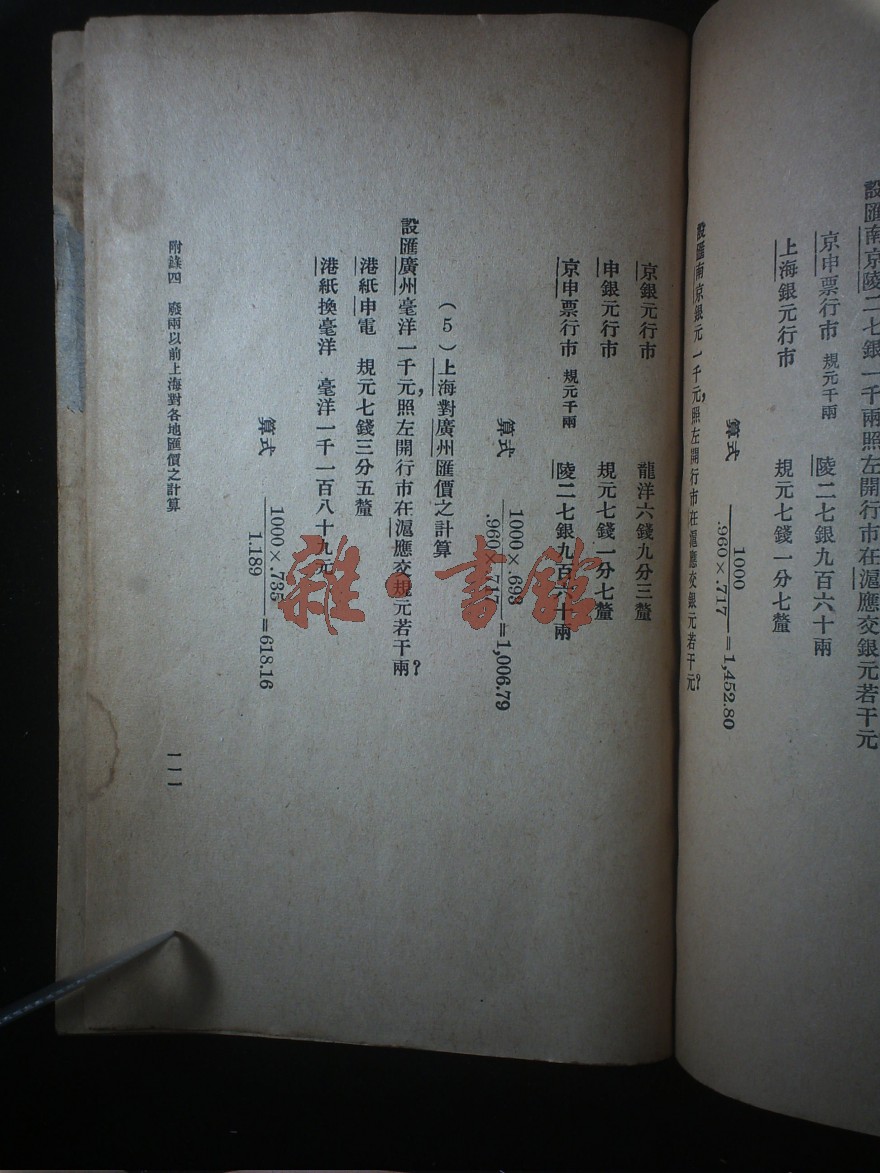 設匯南京陵二七銀一千兩照左開行市在滬應交銀元若干元
京申票行市 規元千兩 陵二七銀九百六十兩
上海銀元行市 規元七錢一分七釐
算式 1000 / .960 × .717 = 1,452.80
設匯南京銀元一千元，照左開行市在滬應交銀元若干元？
京銀元行市 龍洋六錢九分三釐
申銀元行市 規元七錢一分七釐
京申票行市 規元千兩 陵二七銀九百六十兩
算式 1000 × .693 / .960 × .717 = 1,006.79
（5）上海對廣州匯價之計算
設匯廣州毫洋一千元，照左開行市在滬應交規元若干兩？
港紙申電 規元七錢三分五釐
港紙換毫洋 毫洋一千一百八十九元
算式 1000 × .735 / 1.189 = 618.16
附錄四 廢兩以前上海對各地匯價之計算
一一一
雜·書館